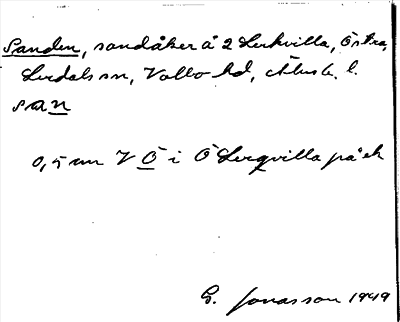 Sanden, sandåker å 2 Lerkvilla, Östra,
Lerdals sn, Valbo hd, Älvsb. l.
san
0,5 mm V Ö i Ö Lerqvilla på ek
G. Jonasson 1949